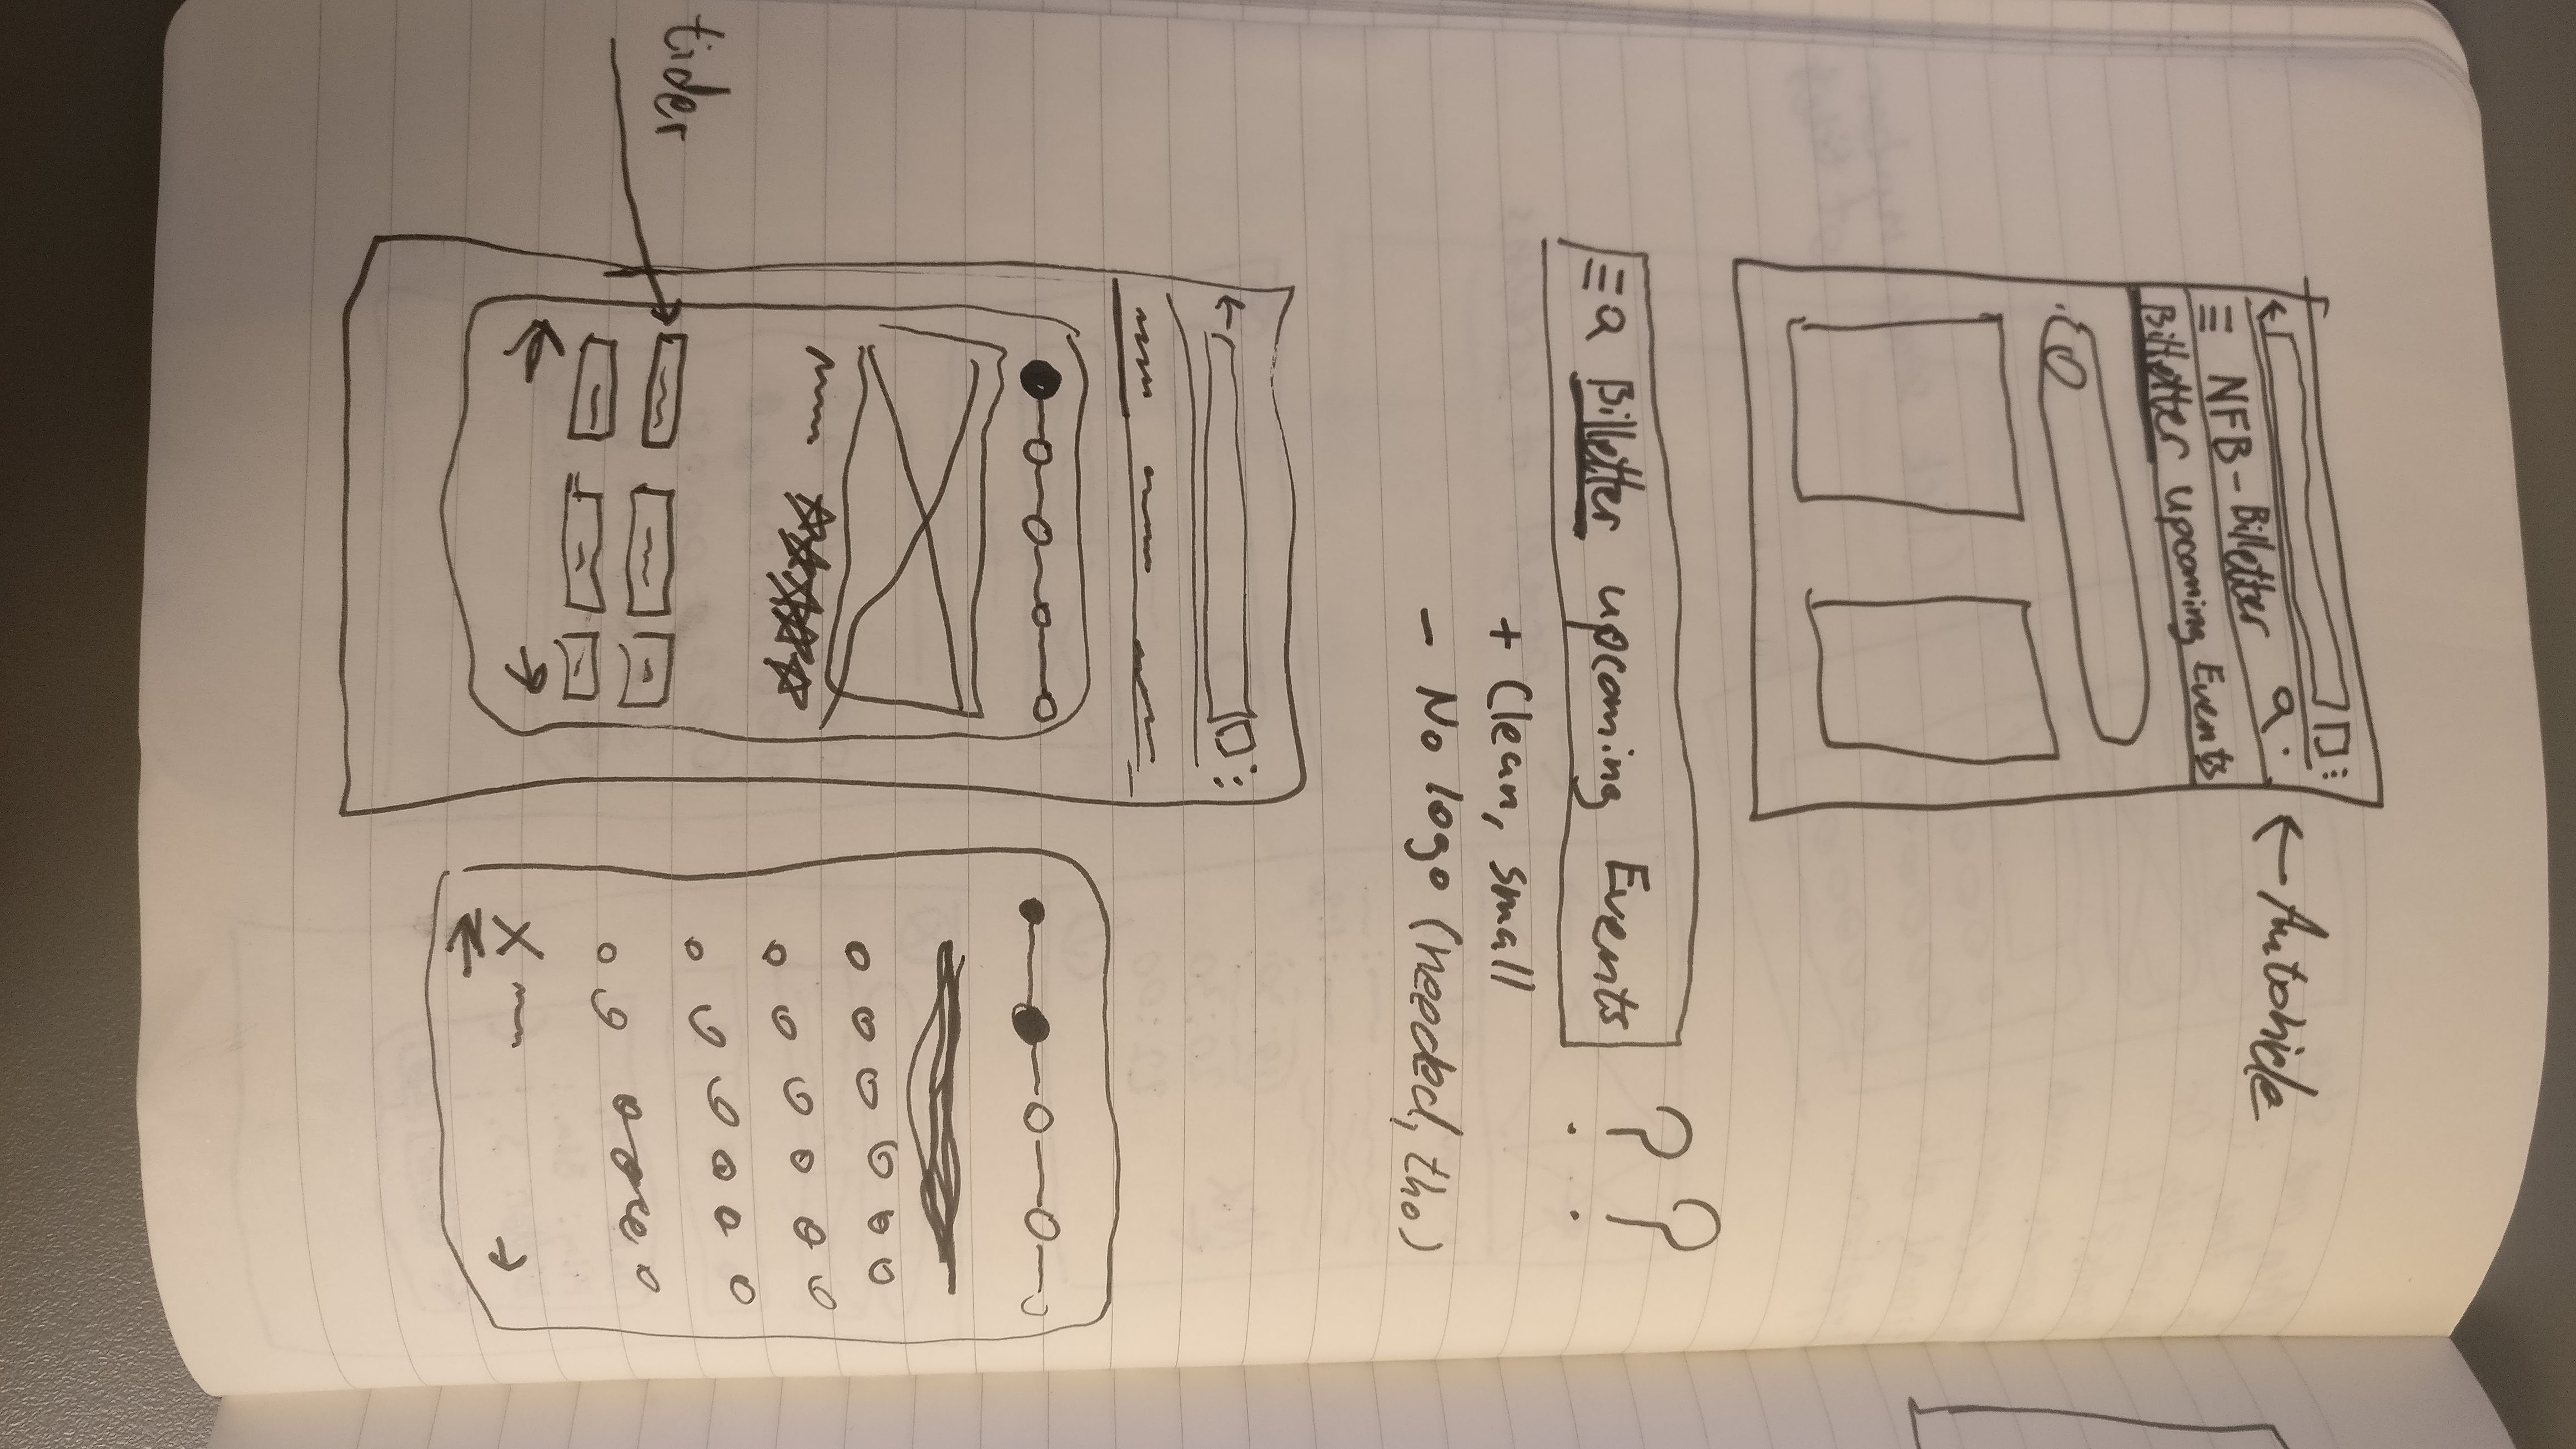 ← Autohide
NFB-Billetter
Billetter upcoming Events
Billetter upcoming Events ? ?
+ Clean, small
- No logo (needed, tho)
tider